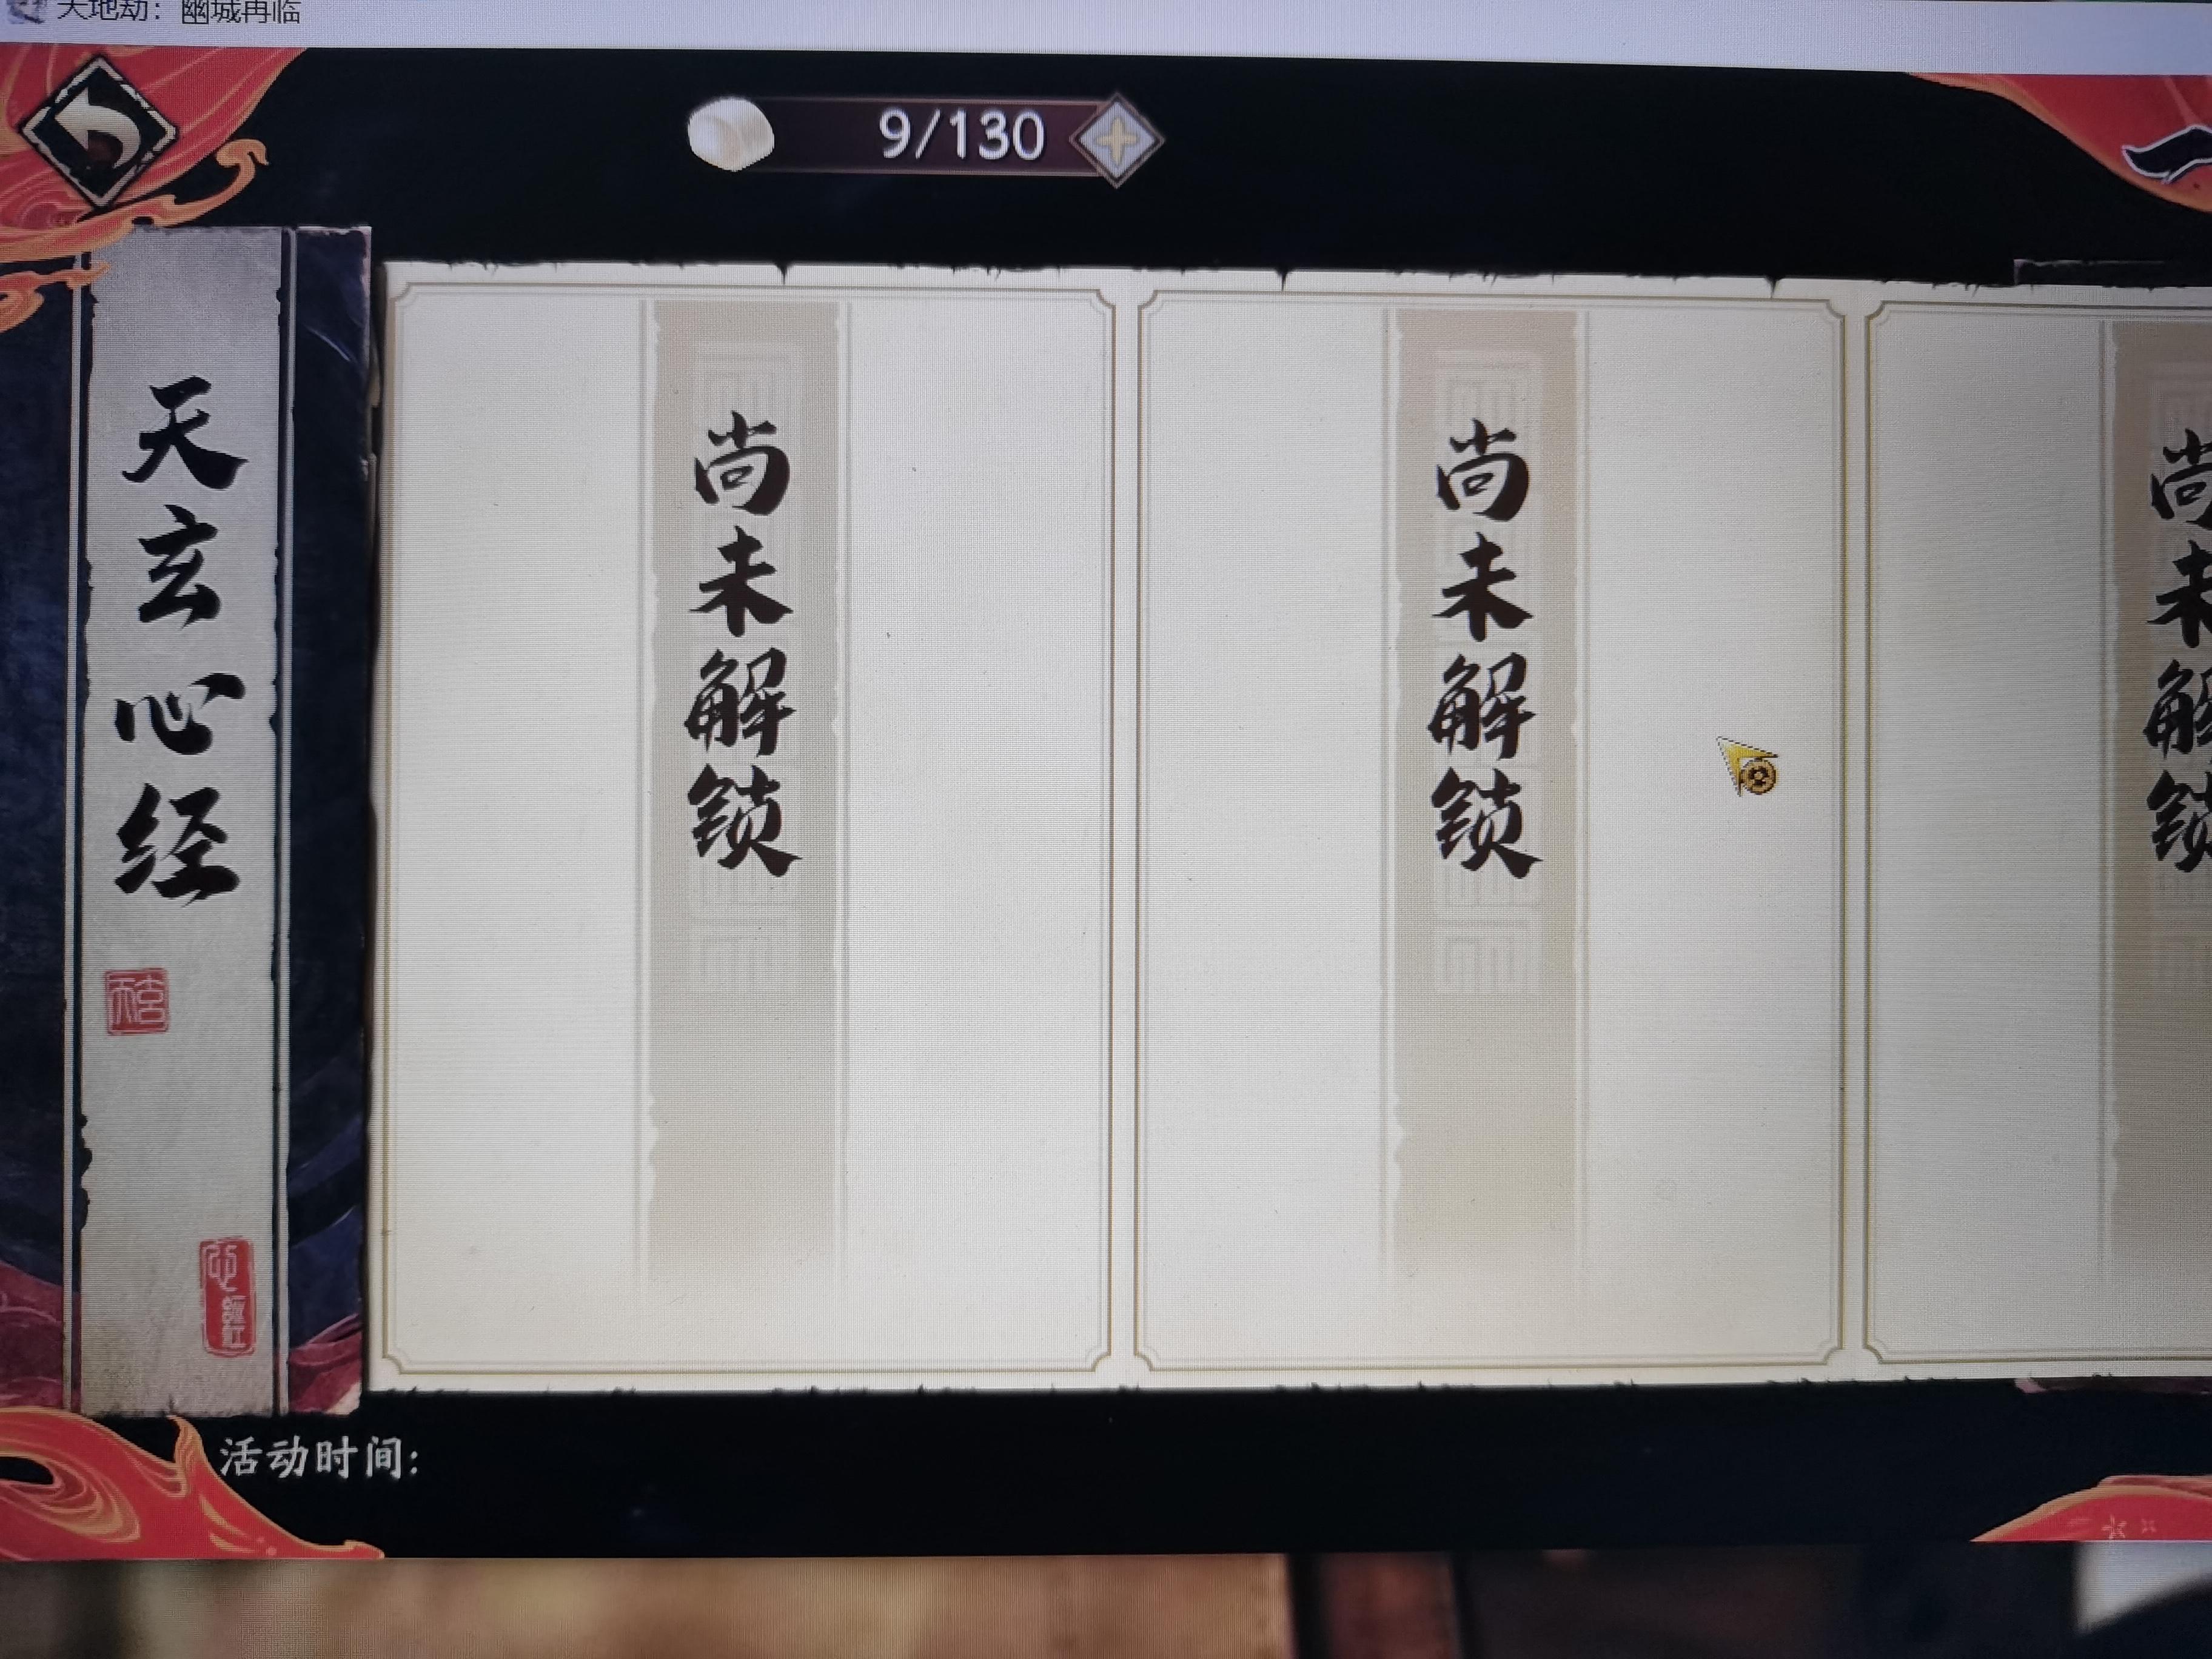 天地劫：幽城再临
9/130
天玄心经
尚未解锁
尚未解锁
尚未解锁
活动时间：